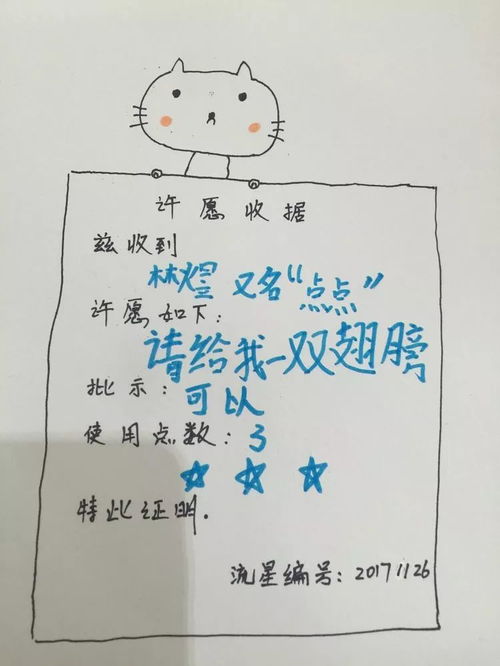 许愿收据
兹收到
林煜 又名“点点”
许愿如下：
请给我一双翅膀
批示：可以
使用点数：3
特此证明.
流星编号：20171126